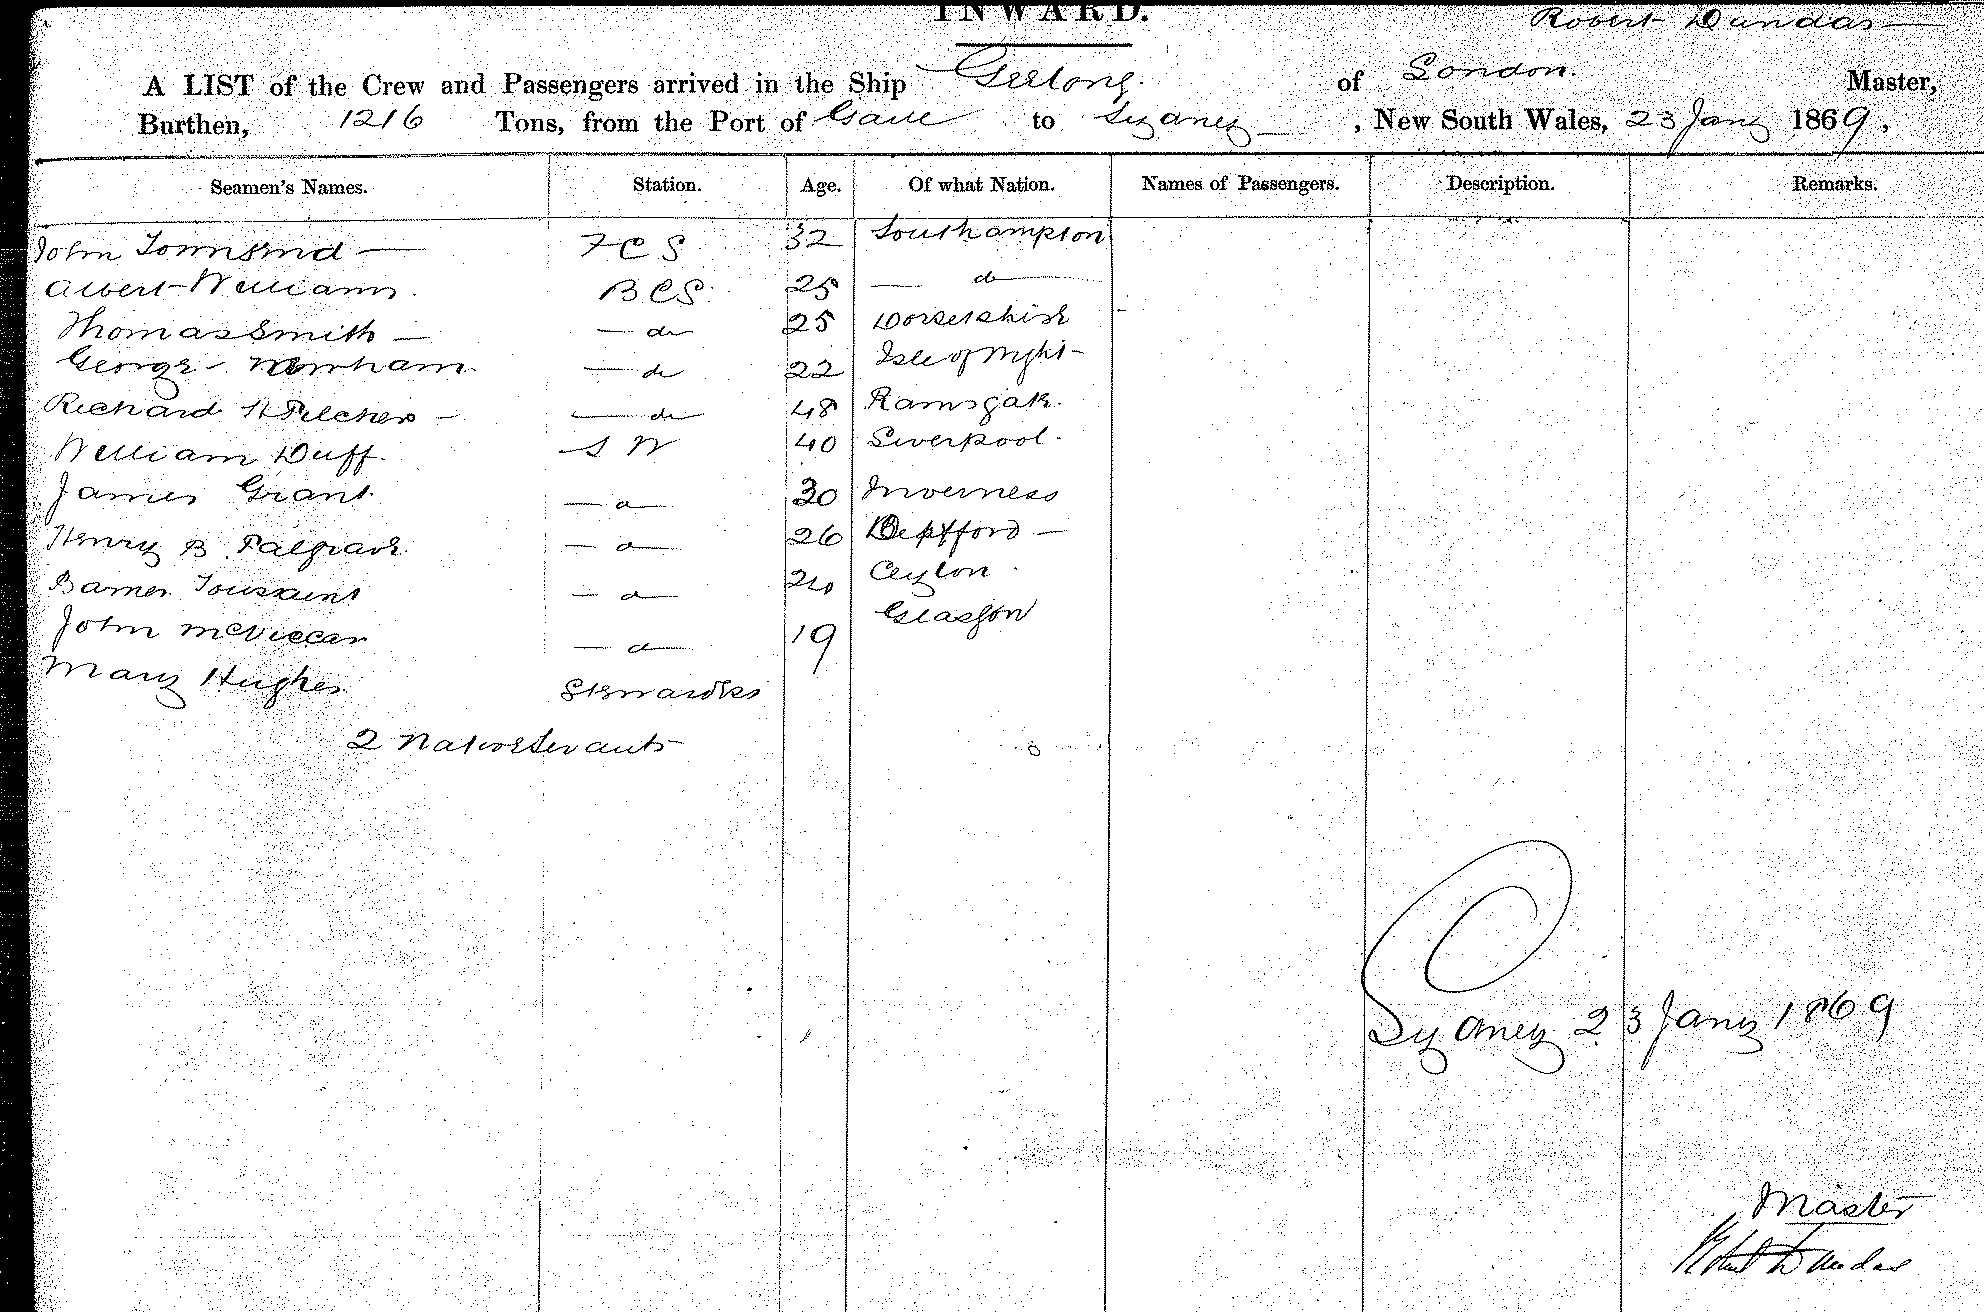 INWARD.
Robert Dundas
A LIST of the Crew and Passengers arrived in the Ship Geelong of London. Master,
Burthen, 1216 Tons, from the Port of Galle to Sydney, New South Wales, 23 Jany 1869,
Seamen's Names. Station. Age. Of what Nation. Names of Passengers. Description. Remarks.
John Townsend 7 C S 32 Southampton
Albert Williams BCS 25 do
Thomas Smith do 25 Dorsetshire
George do 22 Isle of Wight
Richard H Pilcher do 48 Ramsgate
William Duff S W 40 Liverpool
James Grant d 30 Inverness
Henry B Palgrave d 26 Deptford
Toussaint d Ceylon
John McViccar d 19 Glasgow
Mary Hughes Stewardess
2 Native Servants
Sydney 23 Jany 1869
Master
Robert Dundas